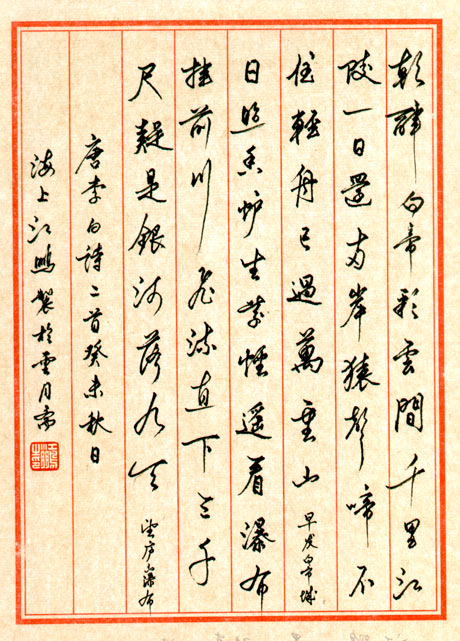 朝辭白帝彩雲間千里江
陵一日還兩岸猿聲啼不
住輕舟已過萬重山 早发白帝城
日照香炉生紫煙遥看瀑布
挂前川飛流直下三千
尺疑是銀河落九天 望庐山瀑布
唐李白詩二首癸未秋日
海上江鵬製於雲月斋